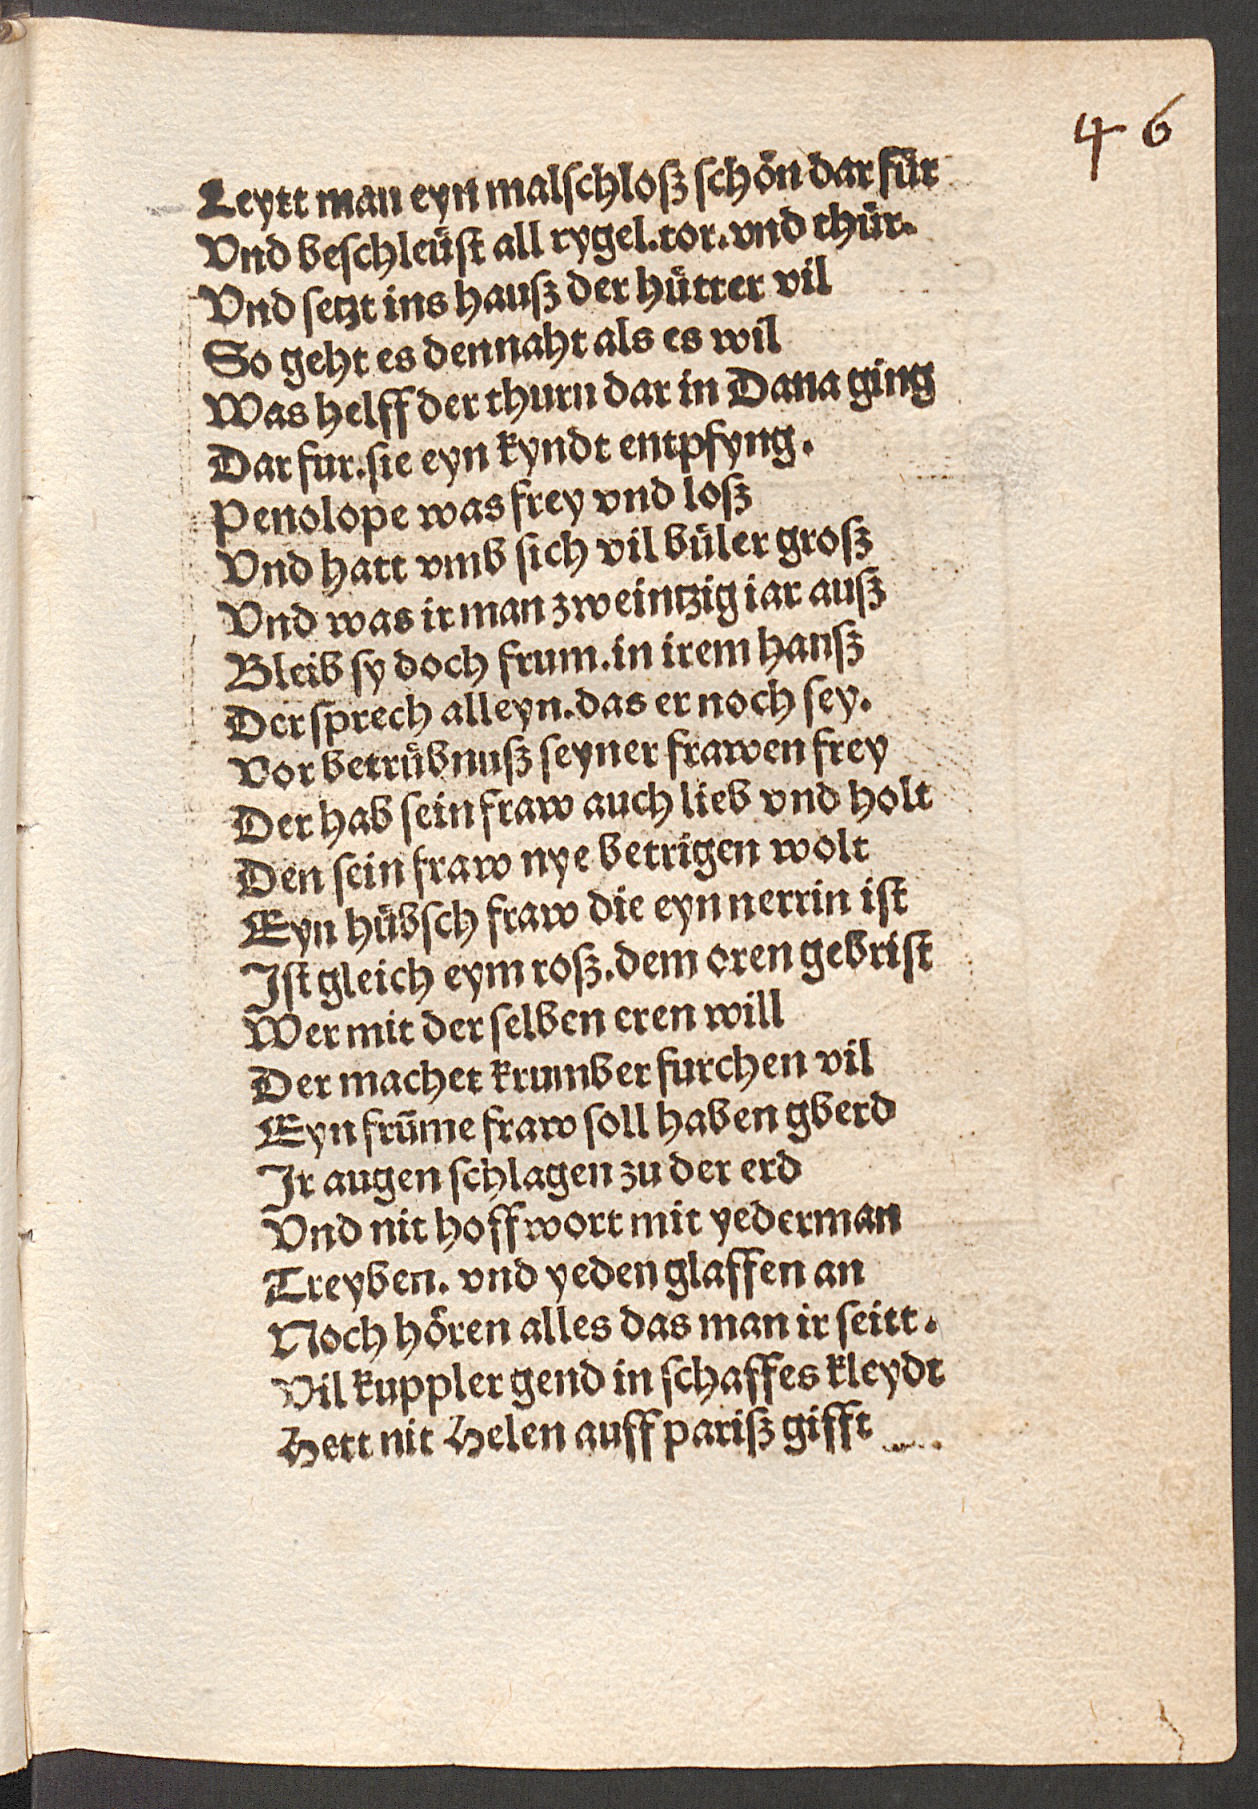 46
Leytt man eyn malſchloſz ſchoͤn dar fuͤr
Vnd beſchleuͤſt all rygel.tor.vnd thuͤr.
Vnd ſetzt ins hauſz der huͤtter vil
So geht es dennaht als es wil
Was helff der thurn dar in Dana ging
Dar fur.ſie eyn kyndt entpfyng.
Penolope was frey vnd loſz
Vnd hatt vmb ſich vil buͤler groſz
Vnd was ir man zweintzig iar auſz
Bleib ſy doch frum.in irem hanſz
Der ſprech alleyn.das er noch ſey.
Vor betruͤbnuſz ſeyner frawen frey
Der hab ſein fraw auch lieb vnd holt
Den ſein fraw nye betrigen wolt
Eyn huͤbſch fraw die eyn nerrin iſt
Iſt gleich eym roſz.dem oren gebriſt
Wer mit der ſelben eren will
Der machet krumber furchen vil
Eyn frūme fraw ſoll haben gberd
Ir augen ſchlagen zu der erd
Vnd nit hoff wort mit yederman
Treyben. vnd yeden glaffen an
Noch hoͤren alles das man ir ſeitt.
Vil kuppler gend in ſchaffes kleydt
Hett nit Helen auff pariſz gifft